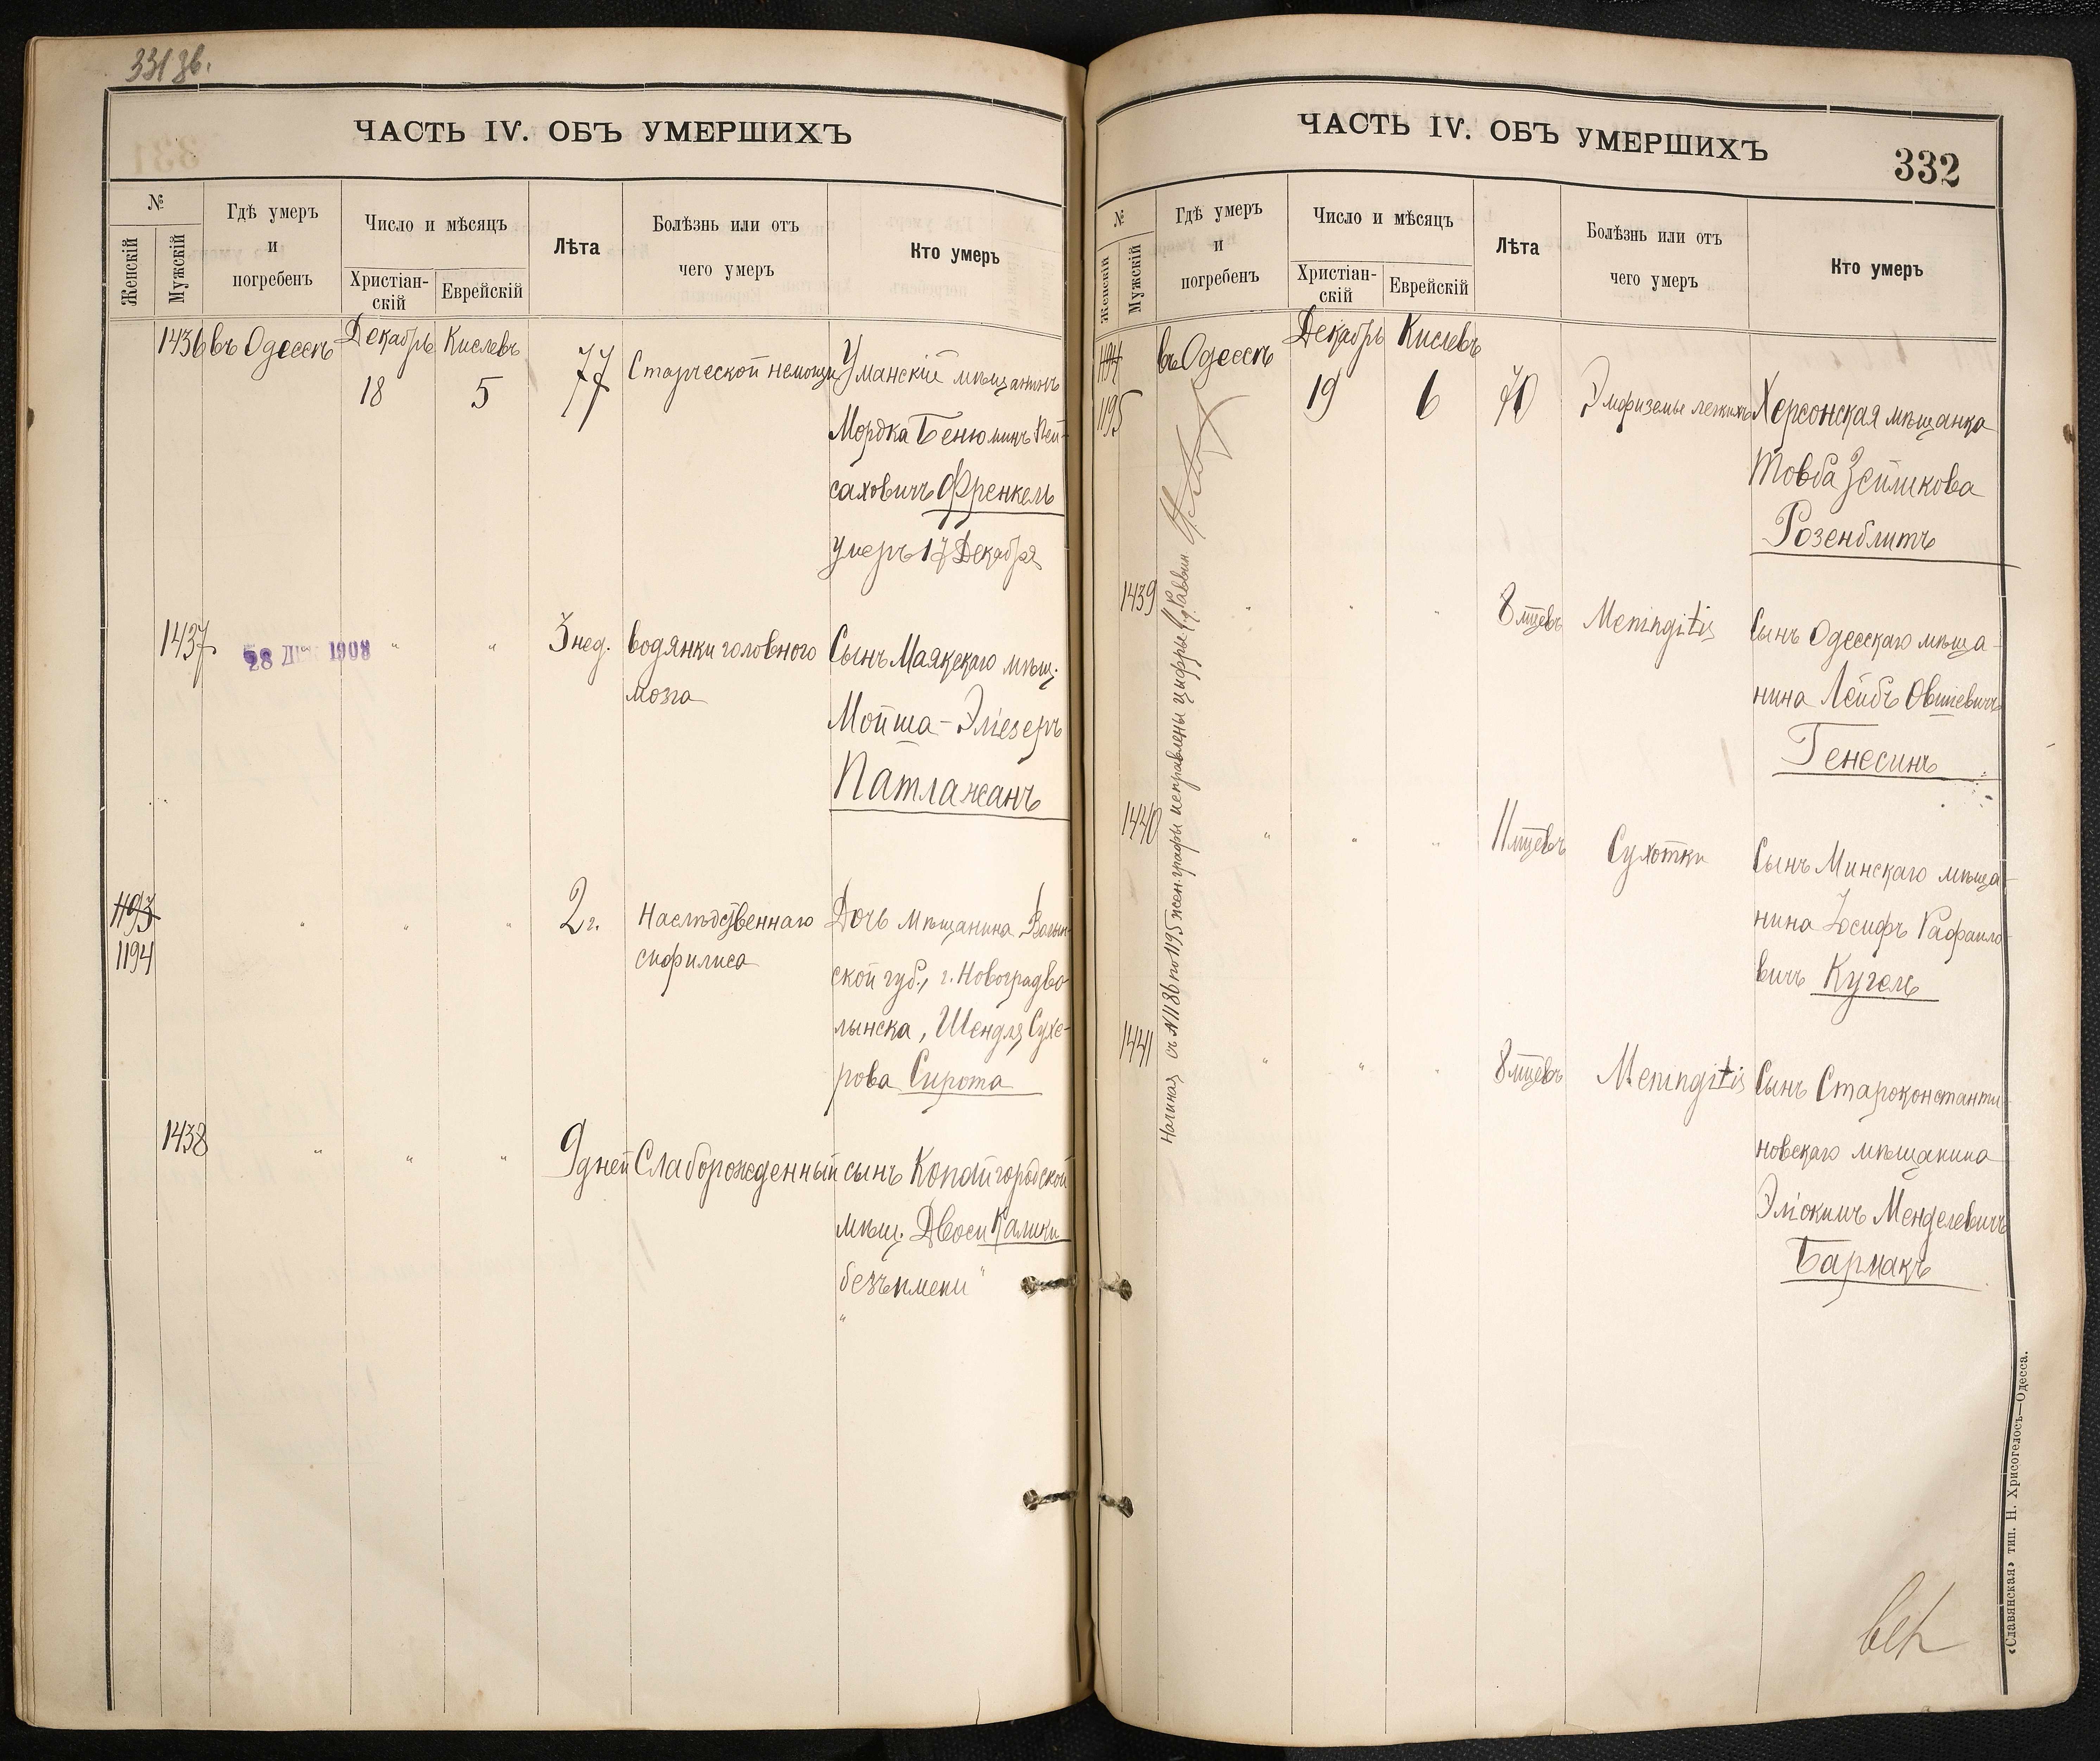 331 зв.
ЧАСТЬ IV. ОБЪ УМЕРШИХЪ
№
Женскій
Мужскій
Гдѣ умеръ
и
погребенъ
Число и мѣсяцъ
Христіан-
скій
Еврейскій
Лѣта
Болѣзнь или отъ
чего умеръ
Кто умеръ
1436 въ Одессѣ Декабрь Кислевъ
18 5 77 Старческой немощи Уманскій мѣщанинъ
Мордка Бенюминъ Пей-
саховичъ Френкель
умеръ 17 Декабря
1437 28 ДЕК 1908 " " 3 нед. водянки головного Сынъ Маякскаго мѣщ.
мозга Мойша-Эліезеръ
Патлажанъ
1193
1194 " " " 2 г. Наслѣдственнаго Дочь мѣщанина Волын-
сифилиса ской губ., г. Новоградво-
лынска, Шендля Сухе-
рова Сирота
1438 " " " 9 дней Слаборожденный сынъ Копайгородской
мѣщ. Двоси Калики
"безъ имени"
ЧАСТЬ IV. ОБЪ УМЕРШИХЪ
332
№
Женскій
Мужскій
Гдѣ умеръ
и
погребенъ
Число и мѣсяцъ
Христіан-
скій
Еврейскій
Лѣта
Болѣзнь или отъ
чего умеръ
Кто умеръ
1194 въ Одессѣ Декабрь Кислевъ
1195 19 6 70 Эмфиземы легкихъ Херсонская мѣщанка
Товба Зейликова
Розенблитъ
1439 " " " 8 мцевъ Meningitis Сынъ Одесскаго мѣща-
нина Лейбъ Овшіевичъ
Генесинъ
1440 " " " 11 мцевъ Сухотки Сынъ Минскаго мѣща-
нина Іосифъ Рафаило-
вичъ Кугель
1441 " " " 8 мцевъ Meningitis Сынъ Староконстанти-
новскаго мѣщанина
Эліокимъ Менделевичъ
Бармакъ
Начиная съ N 1186 по 1195 жен. графы исправлены цифры Раввин
«Славянская» тип. Н. Хрисогелосъ—Одесса.